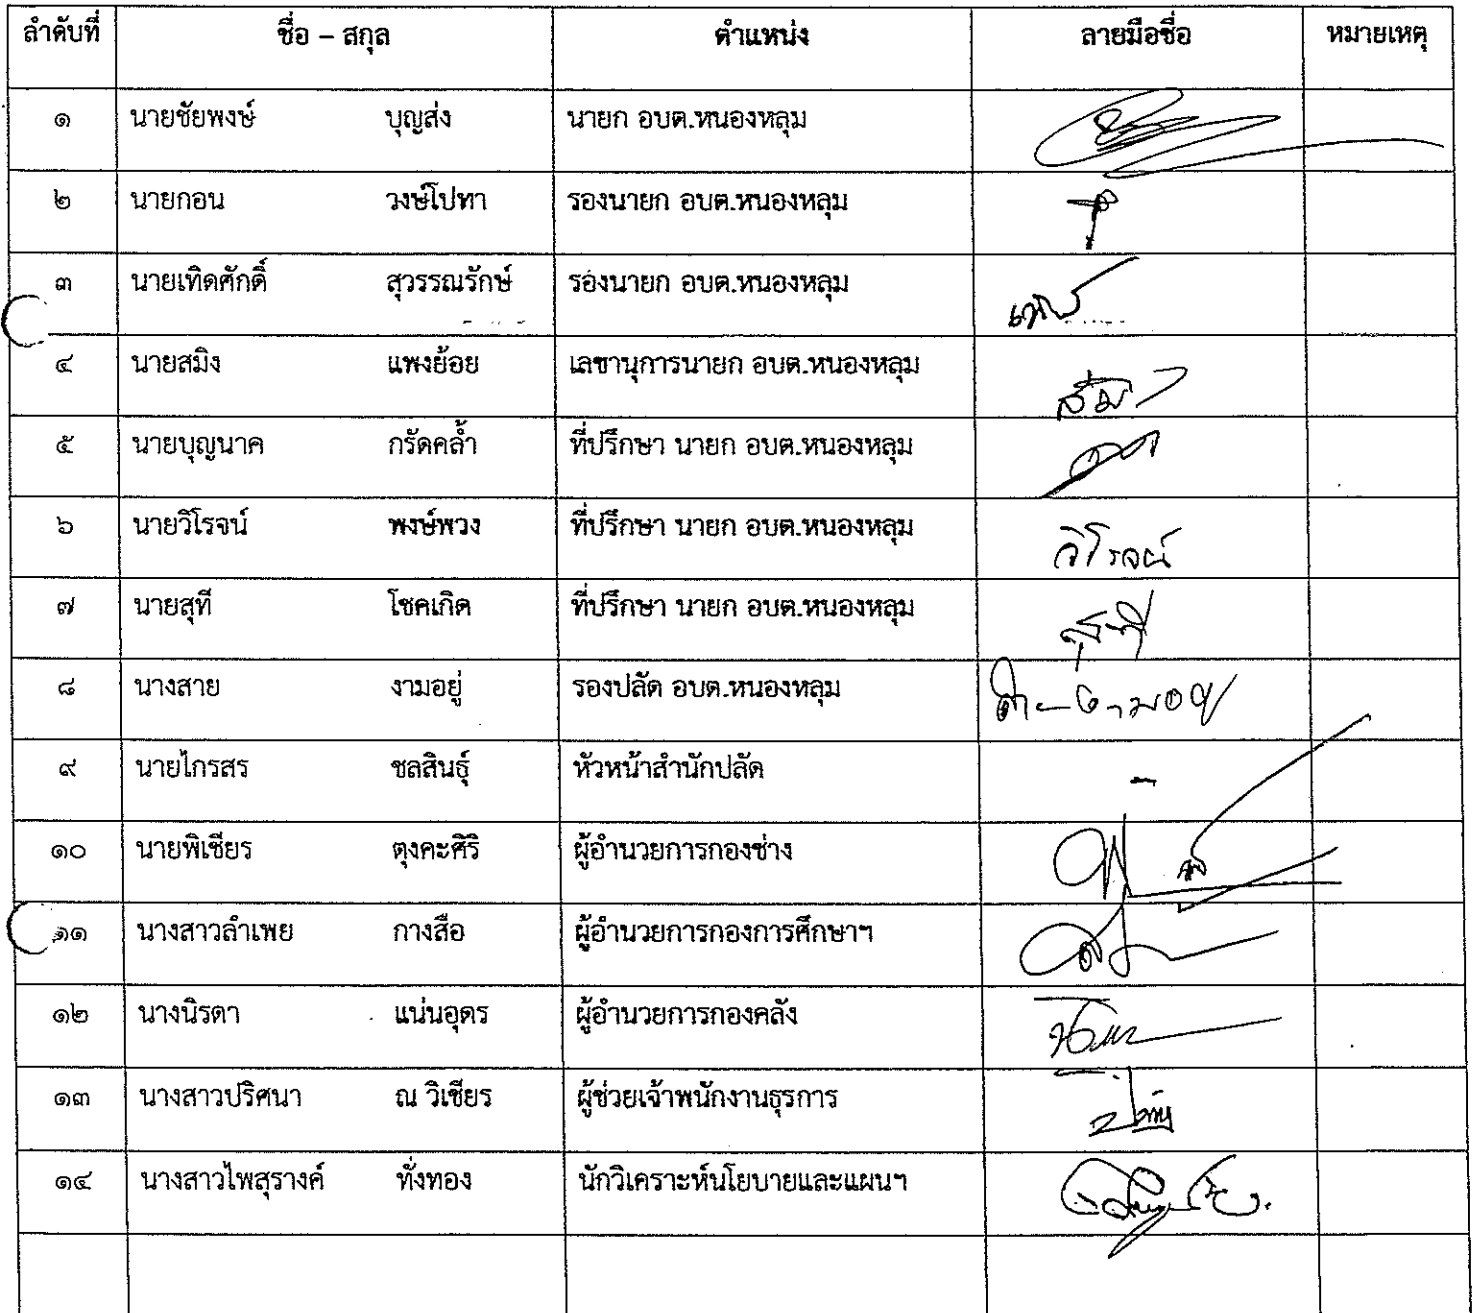 ลำดับที่ ชื่อ – สกุล ตำแหน่ง ลายมือชื่อ หมายเหตุ
๑ นายชัยพงษ์ บุญส่ง นายก อบต.หนองหลุม
๒ นายกอน วงษ์โปทา รองนายก อบต.หนองหลุม
๓ นายเทิดศักดิ์ สุวรรณรักษ์ รองนายก อบต.หนองหลุม
๔ นายสมิง แพงย้อย เลขานุการนายก อบต.หนองหลุม
๕ นายบุญนาค กรัดคล้ำ ที่ปรึกษา นายก อบต.หนองหลุม
๖ นายวิโรจน์ พงษ์พวง ที่ปรึกษา นายก อบต.หนองหลุม วิโรจน์
๗ นายสุที โชคเกิด ที่ปรึกษา นายก อบต.หนองหลุม
๘ นางสาย งามอยู่ รองปลัด อบต.หนองหลุม
๙ นายไกรสร ชลสินธุ์ หัวหน้าสำนักปลัด -
๑๐ นายพิเชียร ตุงคะศิริ ผู้อำนวยการกองช่าง
๑๑ นางสาวลำเพย กางสือ ผู้อำนวยการกองการศึกษาฯ
๑๒ นางนิรดา แน่นอุดร ผู้อำนวยการกองคลัง
๑๓ นางสาวปริศนา ณ วิเชียร ผู้ช่วยเจ้าพนักงานธุรการ
๑๔ นางสาวไพสุรางค์ ทั่งทอง นักวิเคราะห์นโยบายและแผนฯ